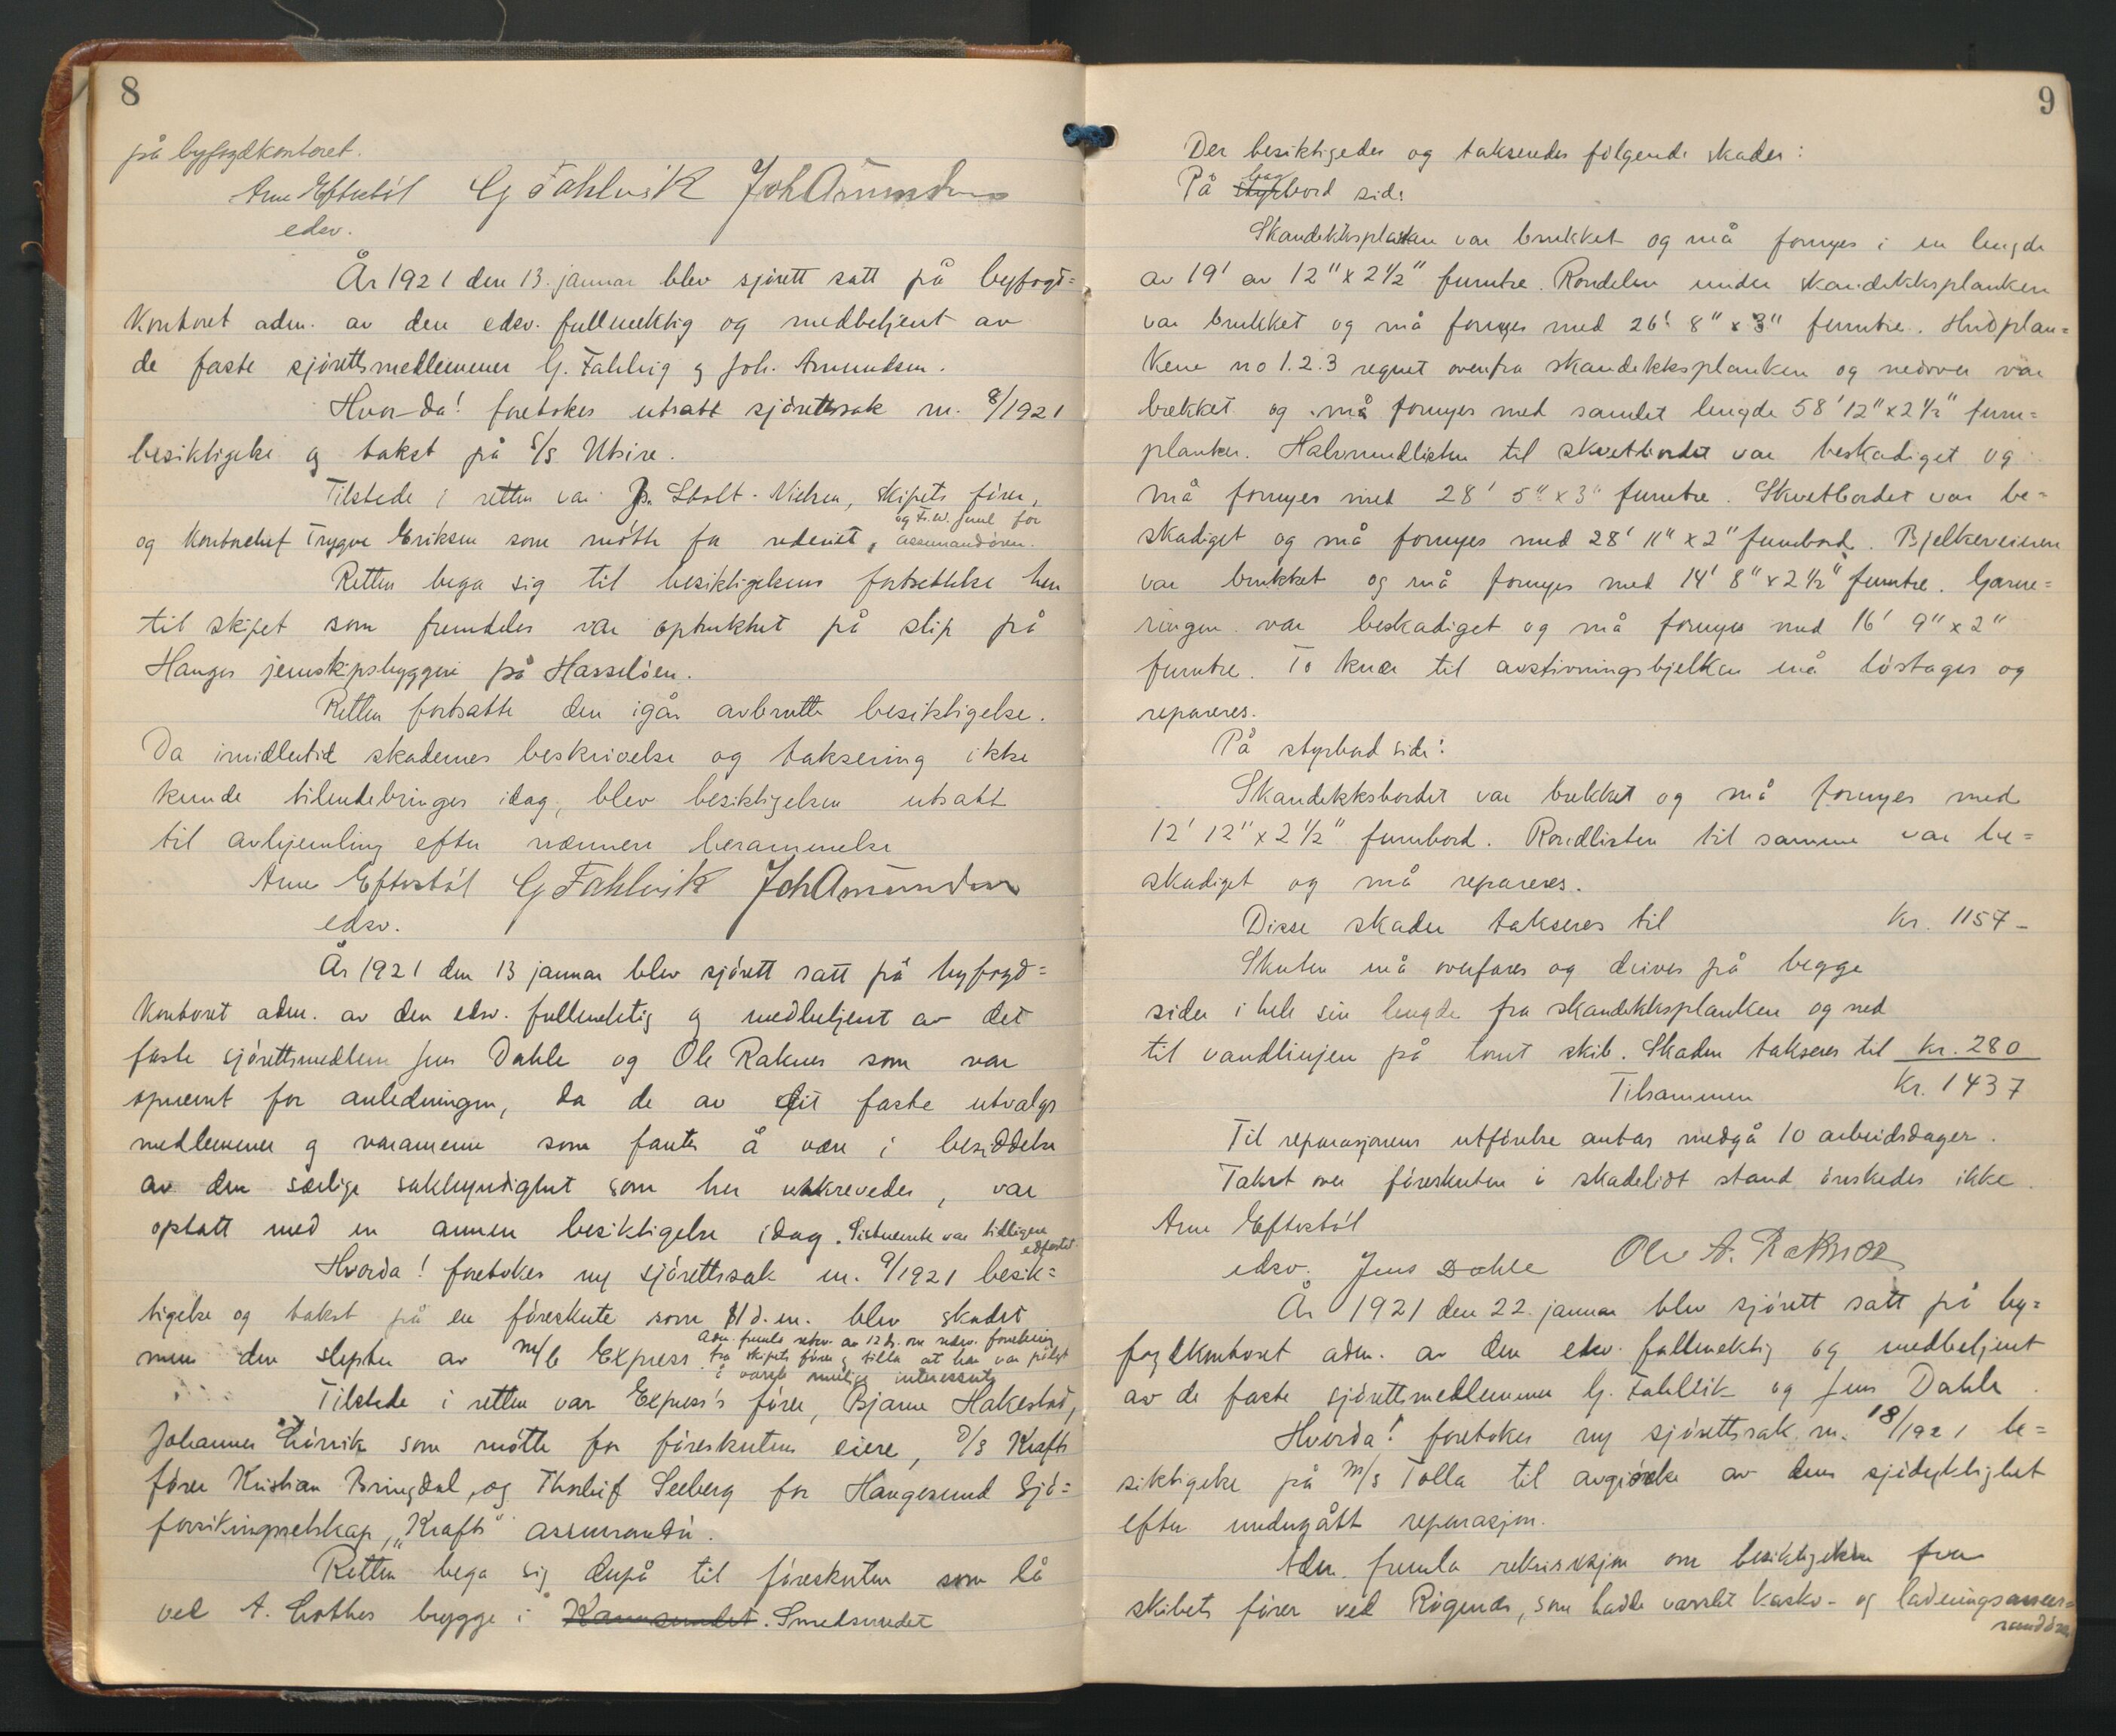 8
på byfogdkontoret.
Arne Eftestöl G Fahlvik Joh Amundsen
edsv.
År 1921 den 13. januar blev sjörett satt på byfogd=
kontoret adm. av den edsv. fullmektig og medbetjent av
de faste sjörettsmedlemmer G. Fahlvig og Joh. Amundsen.
Hvor-da! foretokes utsatt sjörettssak nr. 8/1921
besiktigelse og takst på S/S Utsire.
Tilstede i retten var Stolt-Nielsen, skipets förer,
og kontorchef Trygve Eriksen som mötte for rederiet, og Fr. W. for assurandören.
Retten bega sig til besiktigelsens fortsettelse hen
til skipet som fremdeles var optrukket på slip på
Hauges jernskipsbyggeri på Hasselöen.
Retten fortsatte den igår avbrutte besiktigelse.
Da imidlertid skadernes beskrivelse og taksering ikke
kunde tilendebringes idag, blev besiktigelsen utsatt
til avhjemling efter nærmere berammelse
Arne Eftestöl G Fahlvik Joh Amundsen
edsv.
År 1921 den 13 januar blev sjörett satt på byfogd=
kontoret adm. av den edsv. fullmektig og medbetjent av det
faste sjörettsmedlem Jens Dahle og Ole Raknes som var
opnevnt for anledningen, da de av det faste utvalgs
medlemmer og varamenn som fantes å være i besiddelse
av den særlige sakkyndighet som her utkrevedes, var
optatt med en annen besiktigelse idag. Sistnevnte var tidligere edfestet.
Hvorda! foretokes ny sjörettssak nr. 9/1921 besik=
tigelse og takst på en föreskute som 11 d.m. blev skadet
men den sleptes av M/b Express. Adm. fremla rekv. av 12 ds. om nedv. forretning fra skipets förer og tilla at han var pålagt å varsle mulige interessenter
Tilstede i retten var Express's förer, Bjarne Hakestad,
Johannes som mötte for föreskutens eiere, D/S Krafts
förer Kristian Bringdal, og Thorleif Seeberg for Haugesund Sjö=
forsikringsselskap, "Krafts" assurandör.
Retten bega sig derpå til föreskuten som lå
ved A. Lothes brygge i Karmsundet. Smedsundet
9
Der besiktigedes og takseredes fölgende skader:
På styrbord bag side:
Skandeksplanken var brukket og må fornyes i en lengde
av 19' av 12" x 2 1/2" furutre. Rondelen under skandeksplanken
var brukket og må fornyes med 26' 8" x 3" furutre. Hudplan=
kene no 1.2.3 regnet ovenfra skandeksplanken og nedover var
brekket og må fornyes med samlet lengde 58' 12" x 2 1/2" furu=
planker. Halvrundlisten til skvetbordet var beskadiget og
må fornyes med 28' 5" x 3" furutre. Skvetbordet var be=
skadiget og må fornyes med 28' 11" x 2" furubord. Bjelkeveieren
var brukket og må fornyes med 14' 8" x 2 1/2" furutre. Garne=
ringen var beskadiget og må fornyes med 16' 9" x 2"
furutre. To knær til avstivningsbjelken må löstages og
repareres.
På styrbord side:
Skandeksbordet var brekket og må fornyes med
12' 12" x 2 1/2" furubord. Rondlisten til samme var be=
skadiget og må repareres.
Disse skader takseres til kr. 1157 -
Skuten må overfares og drives på begge
sider i hele sin lengde fra skandeksplanken og ned
til vandlinjen på tomt skib. Skaden takseres til kr. 280
Tilsammen kr. 1437
Til reparasjonens utförelse antas medgå 10 arbeidsdager.
Takst over föreskuten i skadelidt stand önskedes ikke.
Arne Eftestöl
edsv. Jens Dahle Ole A. Raknes
År 1921 den 22. januar blev sjörett satt på by=
fogdkontoret adm. av den edsv. fullmektig og medbetjent
av de faste sjörettsmedlemmer G. Fahlvik og Jens Dahle.
Hvorda! foretokes ny sjörettssak nr. 18/1921 be=
siktigelse på M/S Tolla til avgjörelse av dens sjödyktighet
efter undergått reparasjon.
Adm. fremla rekvisisjon om besiktigelsen fra
skibets förer ved Rogenæs, som hadde varslet kasko- og ladningsassu=
randören